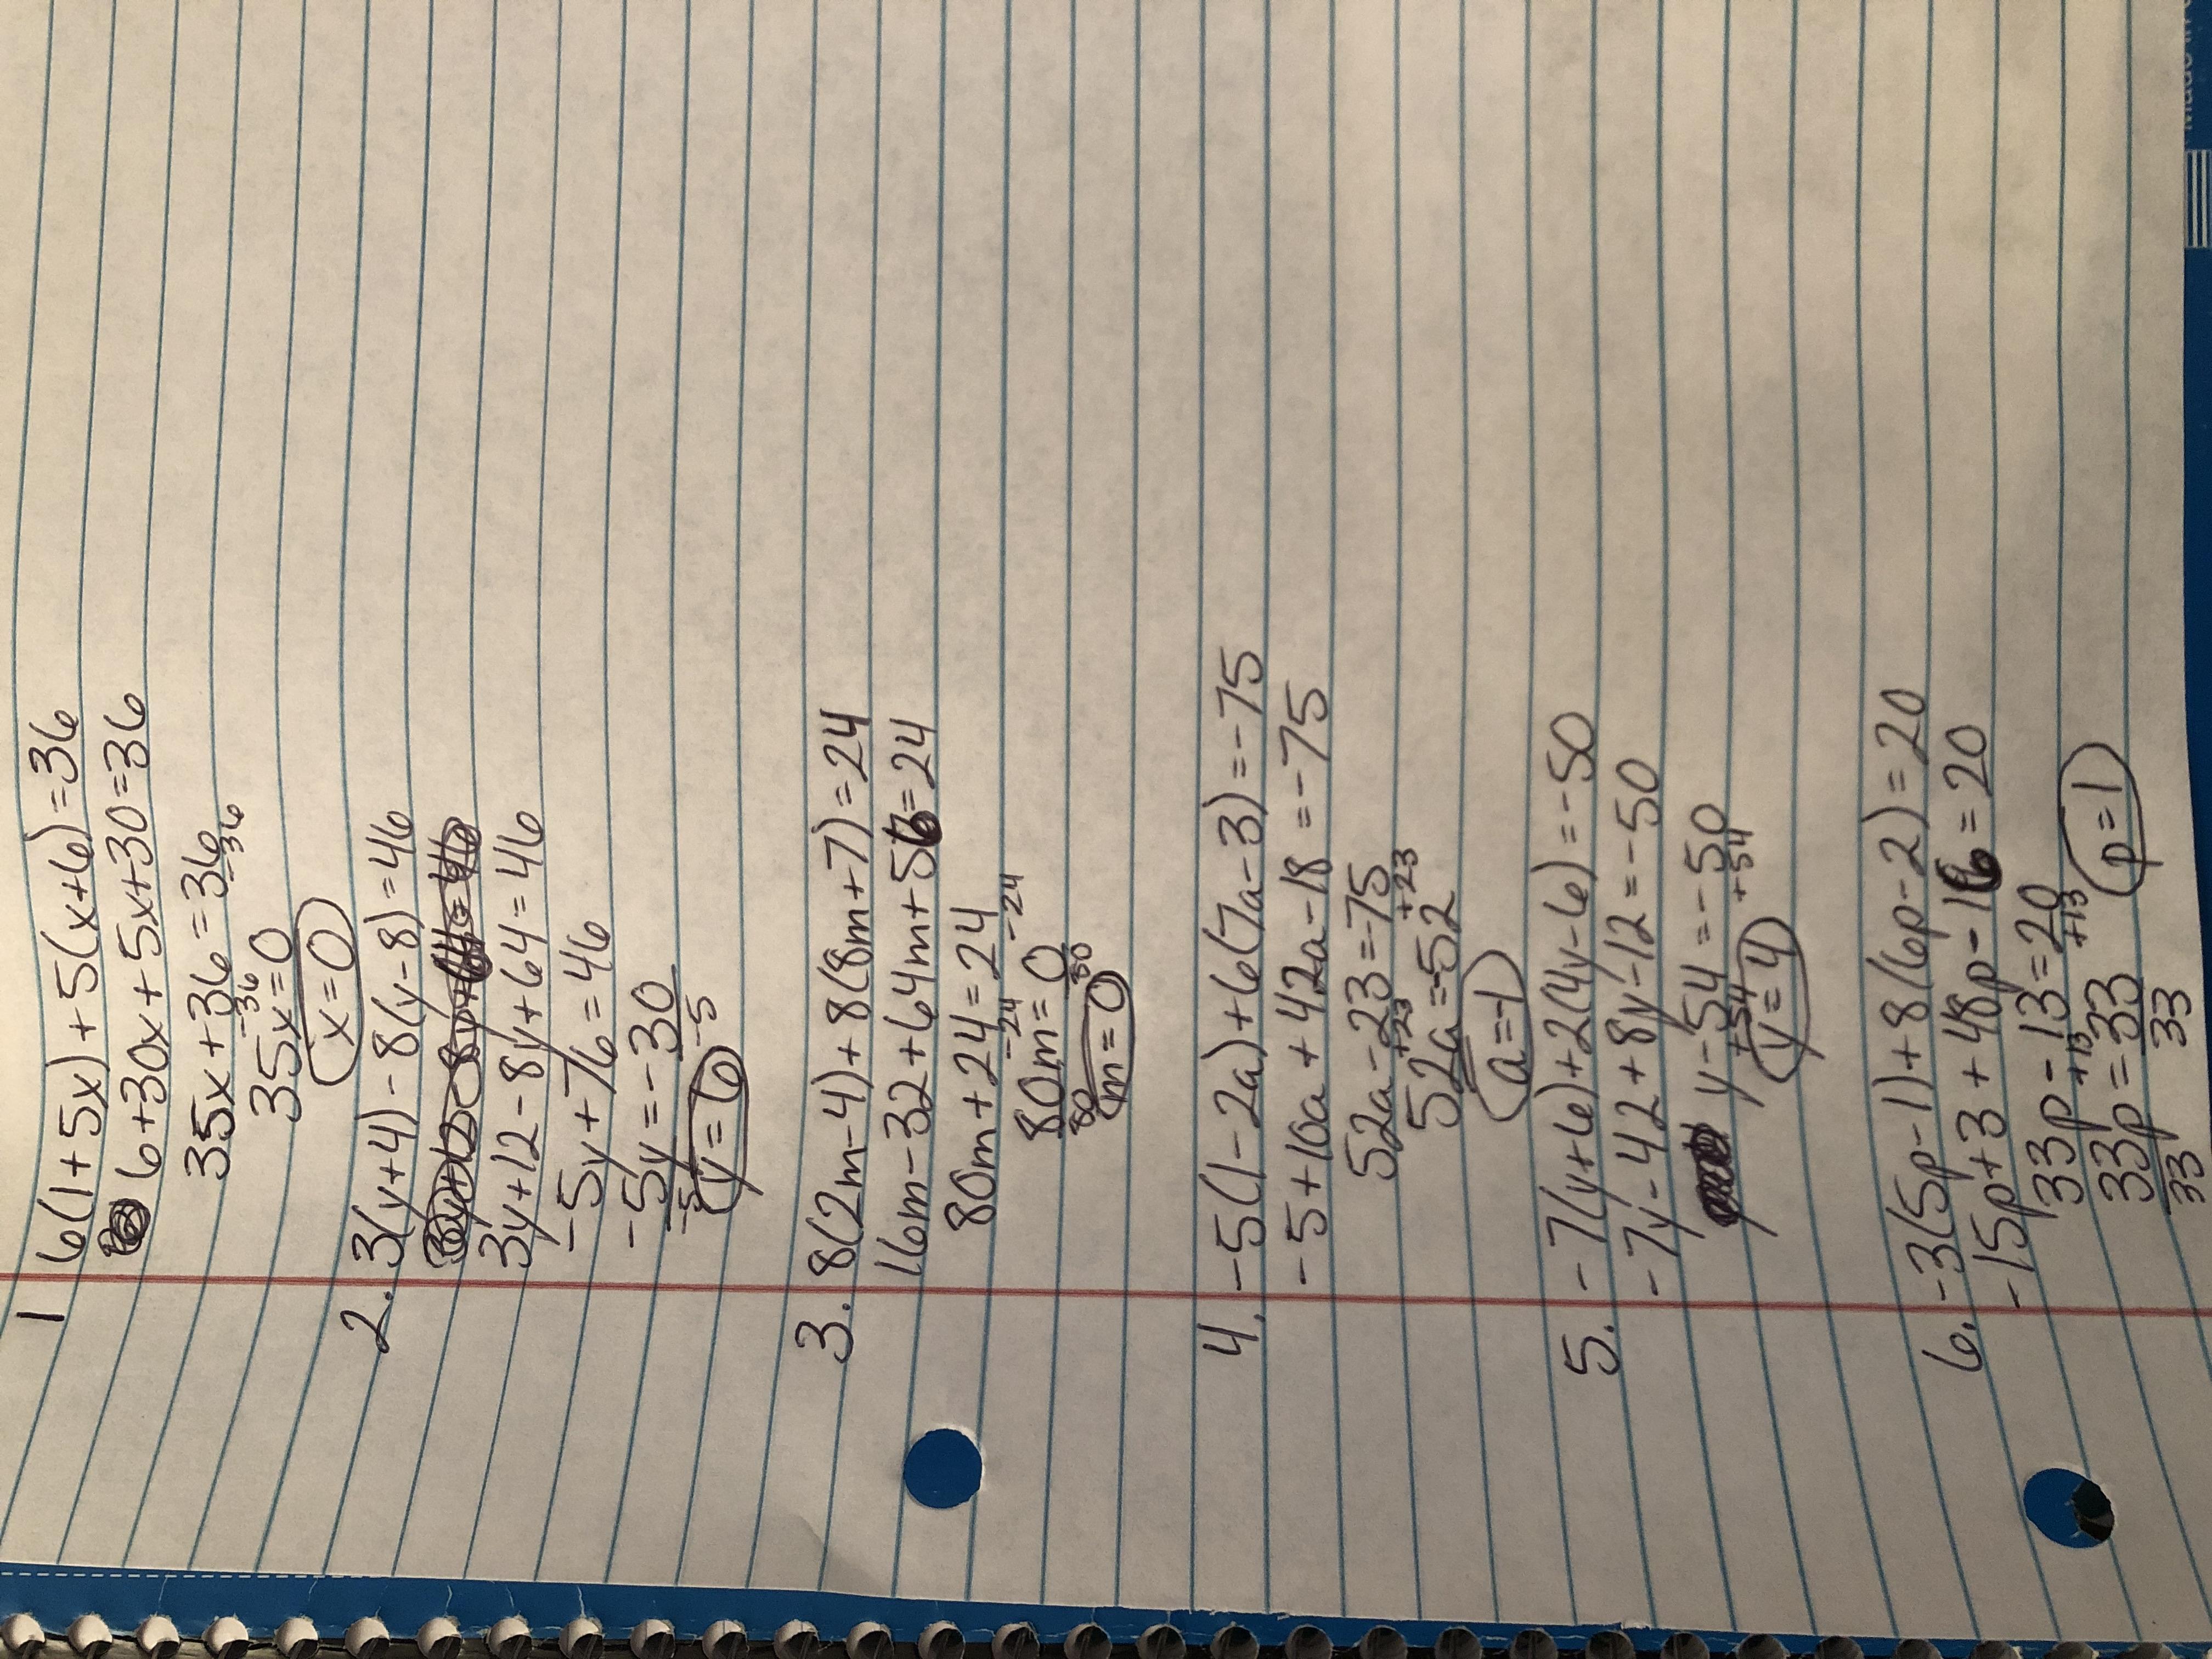 1 6(1+5x)+5(x+6)=36
6+30x+5x+30=36
35x+36=36
-36 -36
35x=0
x=0
2. 3(y+4)-8(y-8)=46
3y+12-8y+64=46
-5y+76=46
-5y=-30
-5 -5
y=6
3. 8(2m-4)+8(8m+7)=24
16m-32+64m+56=24
80m+24=24
-24 -24
80m=0
80 80
m=0
4. -5(1-2a)+6(7a-3)=-75
-5+10a+42a-18=-75
52a-23=-75
+23 +23
52a=-52
a=-1
5. -7(y+6)+2(4y-6)=-50
-7y-42+8y-12=-50
y-54=-50
+54 +54
y=4
6. -3(5p-1)+8(6p-2)=20
-15p+3+48p-16=20
33p-13=20
+13 +13
33p=33 p=1
33 33